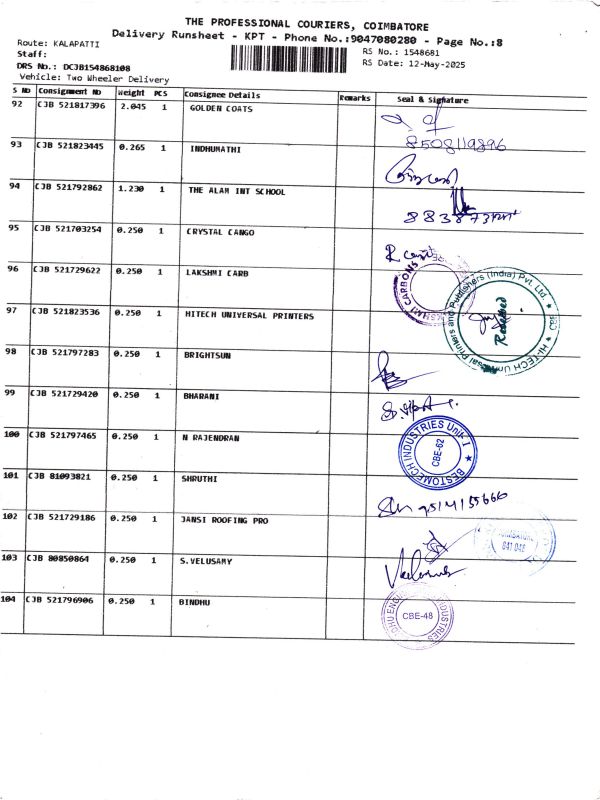 THE PROFESSIONAL COURIERS, COIMBATORE
Delivery Runsheet - KPT - Phone No.:9047080280 - Page No.:8
Route: KALAPATTI
RS No.: 1548681
Staff:
RS Date: 12-May-2025
DRS No.: DCJB154868108
Vehicle: Two Wheeler Delivery
S No Consignment No Weight PCS Consignee Details Remarks Seal & Signature
92 CJB 521817396 2.045 1 GOLDEN COATS
8508119896
93 CJB 521823445 0.265 1 INDHUMATHI
94 CJB 521792862 1.230 1 THE ALAM INT SCHOOL
95 CJB 521703254 0.250 1 CRYSTAL CANGO
96 CJB 521729622 0.250 1 LAKSHMI CARB
KSHMI CARBONS
97 CJB 521823536 0.250 1 HITECH UNIVERSAL PRINTERS
HI-TECH Universal Printers and Publishers (India) Pvt. Ltd. CBE
Received
98 CJB 521797283 0.250 1 BRIGHTSUN
99 CJB 521729420 0.250 1 BHARANI
100 CJB 521797465 0.250 1 N RAJENDRAN
BESTOMECH INDUSTRIES Unit-I
CBE-62
101 CJB 81093821 0.250 1 SHRUTHI
102 CJB 521729186 0.250 1 JANSI ROOFING PRO
103 CJB 80850864 0.250 1 S.VELUSAMY
104 CJB 521796906 0.250 1 BINDHU
CBE-48